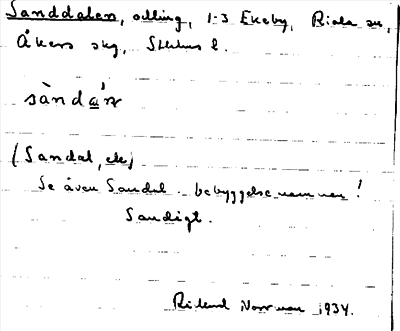 Sanddalen, odling, 1-3 Ekeby, Riala sn,
Åkers skg, Sthlms l.
sàndá̲ɴ
(Sandal, ek)
Se även Sandal. bebyggelsenamnen!
Sandigt.
Rikard Norrman 1934.